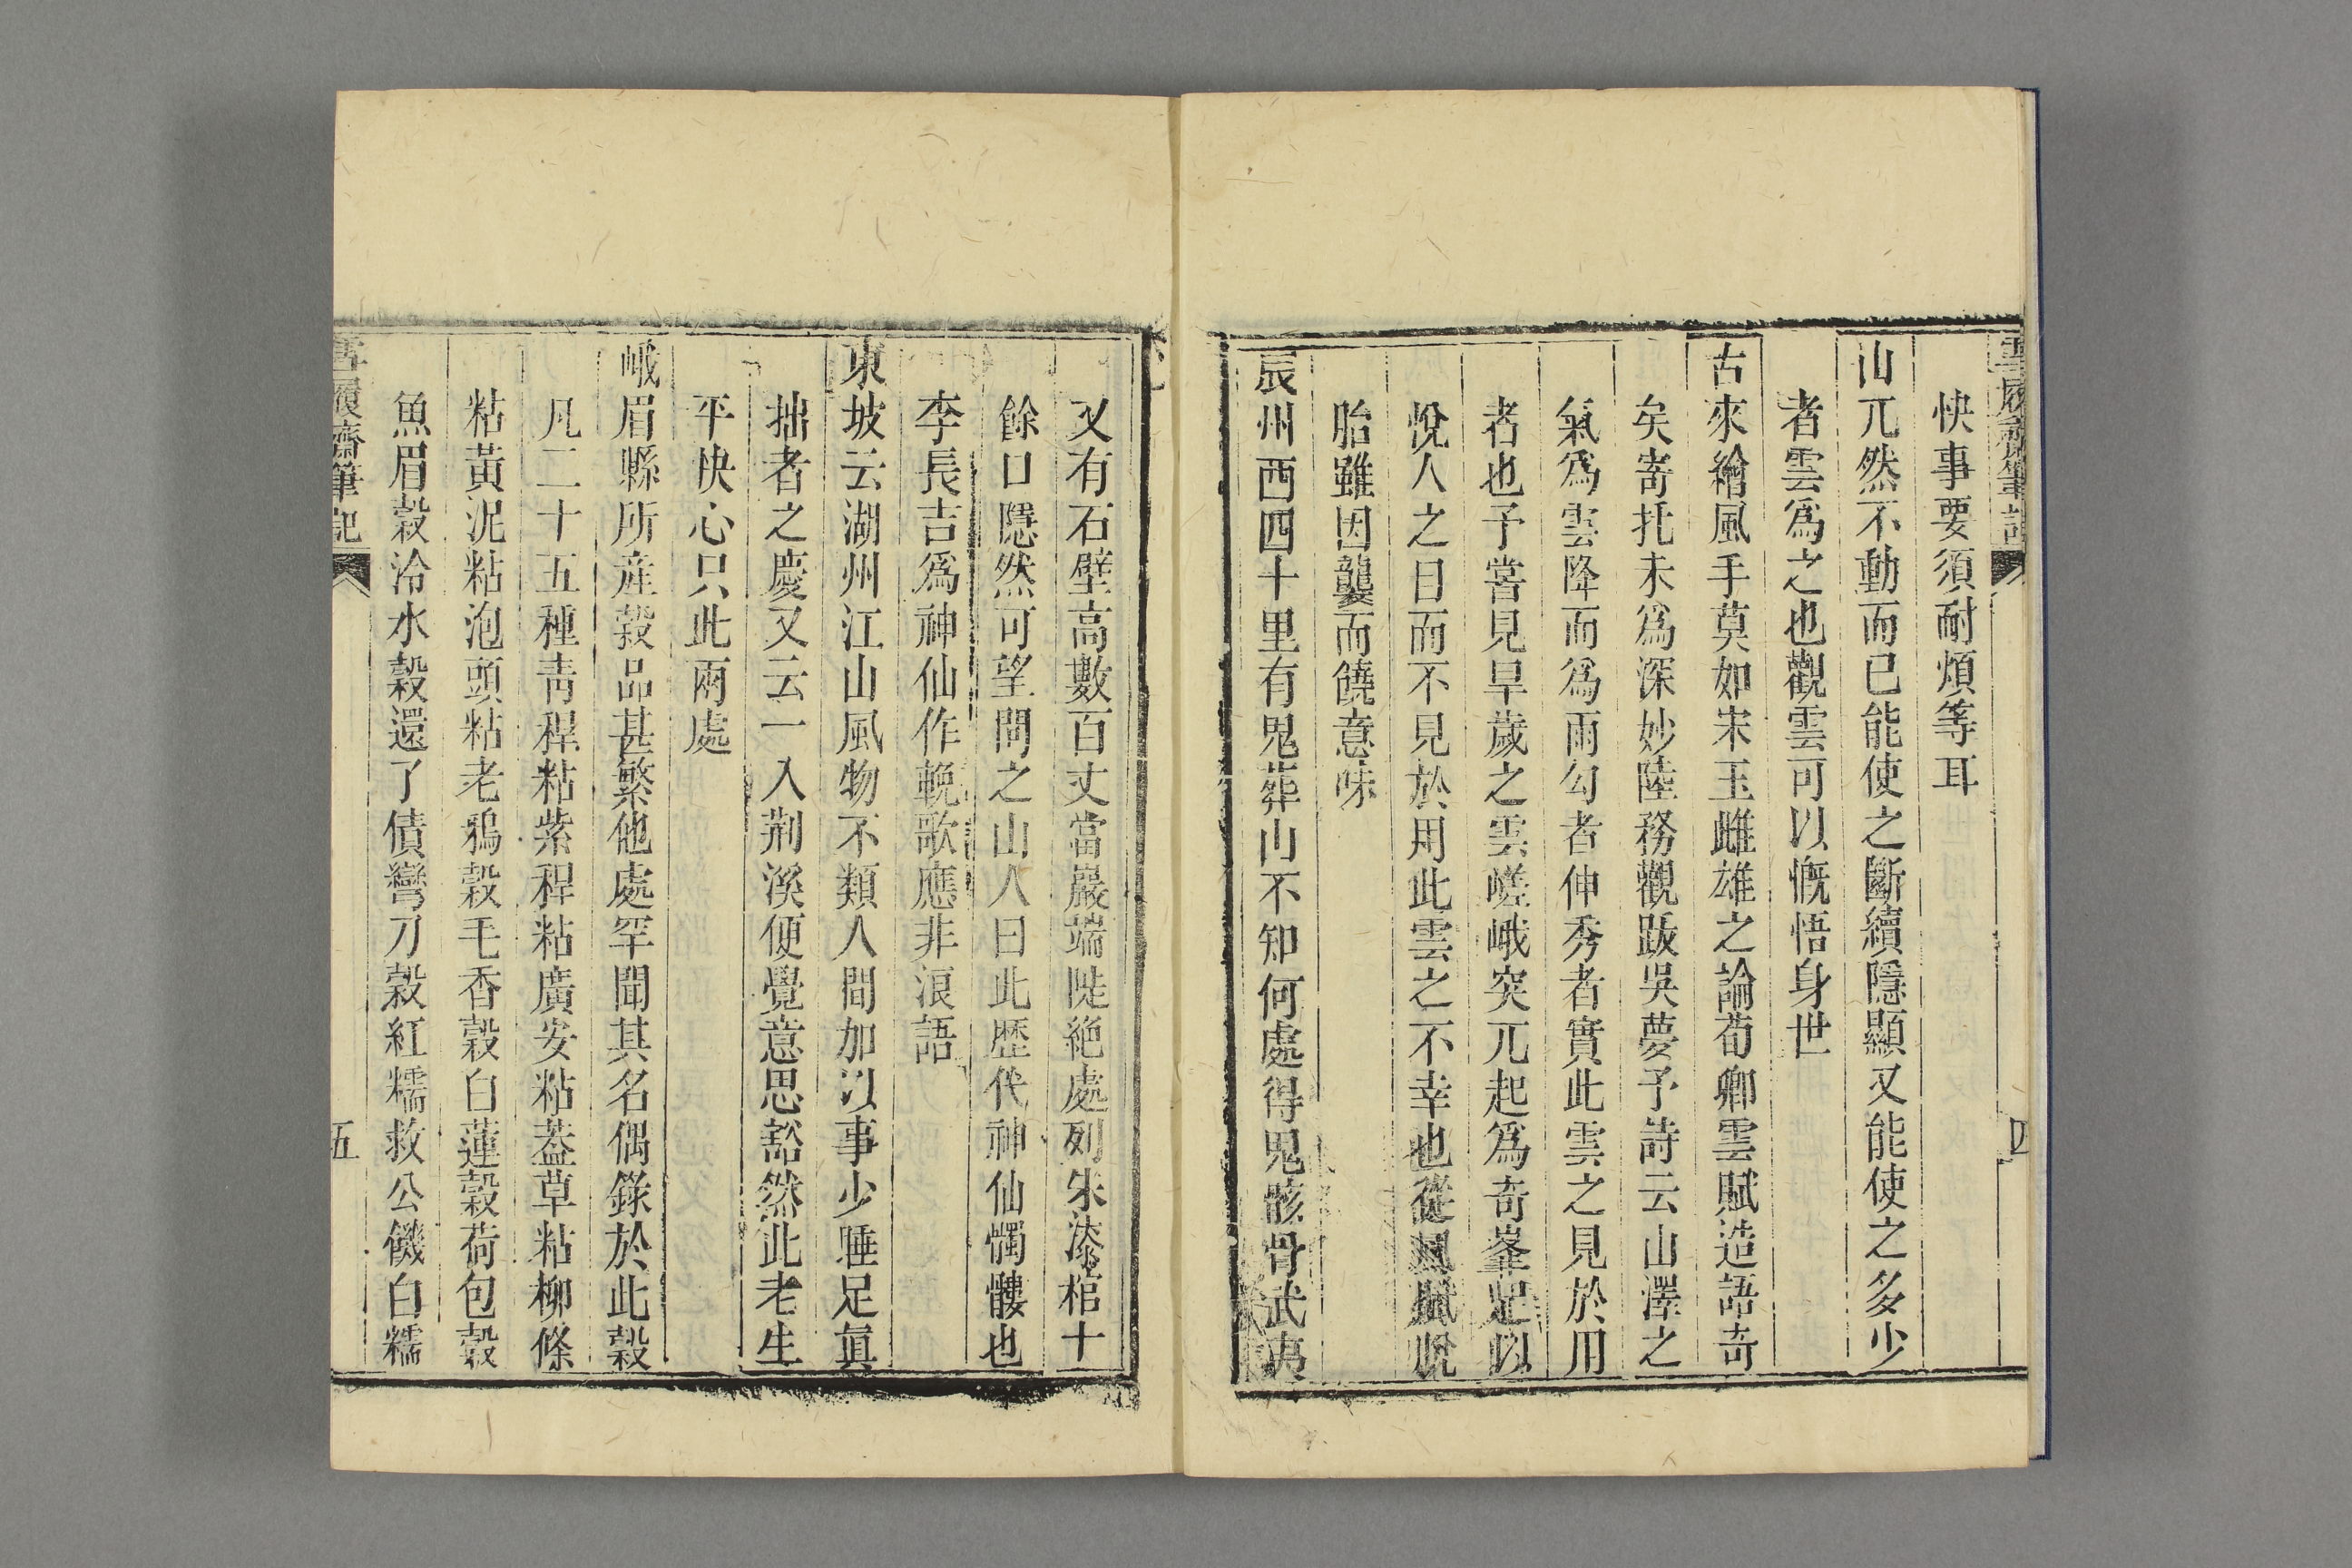 雪履齋筆記
四
快事要須耐煩等耳
山兀然不動而已能使之斷續隱顯又能使之多少
者雲爲之也觀雲可以慨悟身世
古來繪風手莫如宋玉雌雄之論荀卿雲賦造語奇
矣寄托未爲深妙陸務觀跋吳夢予詩云山澤之
氣爲雲降而爲雨勾者伸秀者實此雲之見於用
者也予嘗見旱歲之雲嵯峨突兀起爲奇峯足以
悅人之目而不見於用此雲之不幸也從風賦脫
胎雖因襲而饒意味
辰州西四十里有鬼葬山不知何處得鬼骸骨武夷
又有石壁高數百丈當巖端陡絶處列朱漆棺十
餘口隱然可望問之山人曰此歷代神仙髑髏也
李長吉爲神仙作輓歌應非浪語
東坡云湖州江山風物不類人間加以事少睡足眞
拙者之慶又云一入荆溪便覺意思豁然此老生
平快心只此兩處
峨眉縣所産穀品甚繁他處罕聞其名偶錄於此穀
凡二十五種靑稈粘紫稈粘廣安粘葢草粘柳條
粘黃泥粘泡頭粘老鴉穀毛香穀白蓮穀荷包穀
魚眉穀冷水穀還了債彎刀穀紅糯救公饑白糯
雪履齋筆記
五